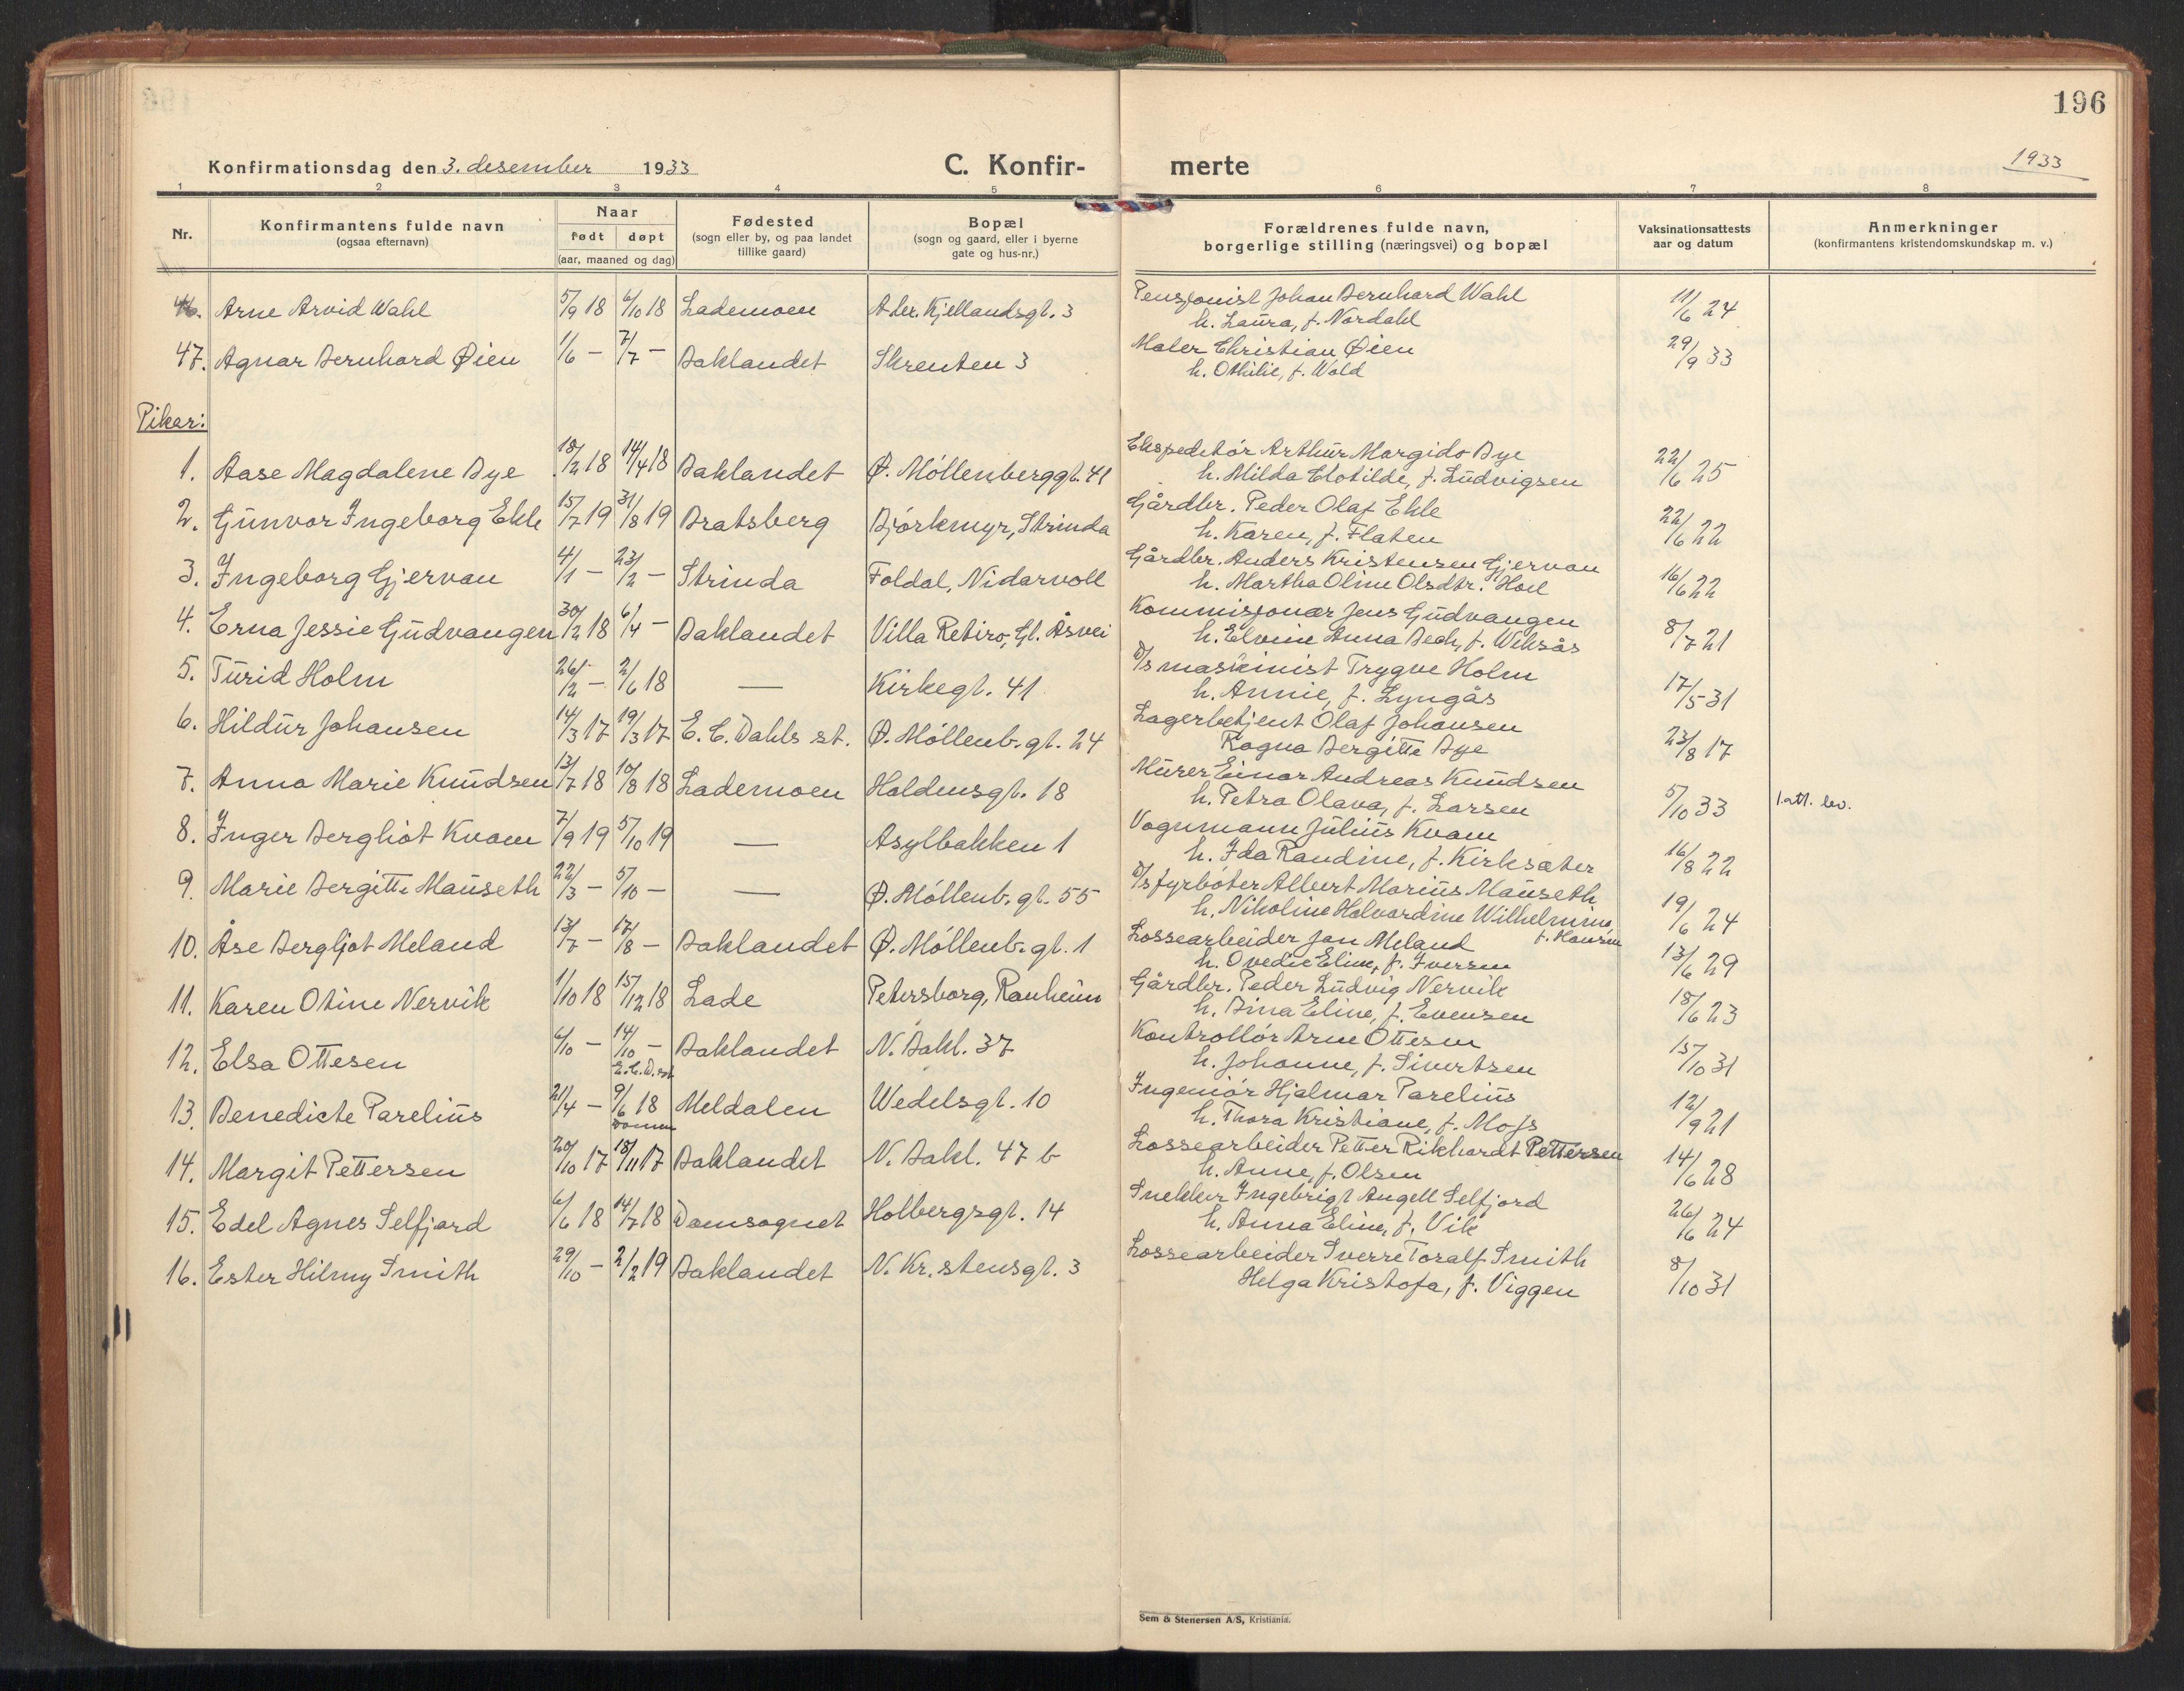 196
Konfirmationsdag den 3. desember 1933 C. Konfir- merte 1933
1 2 3 4 5 6 7 8
Nr. Konfirmantens fulde navn (ogsaa efternavn) Naar født døpt (aar, maaned og dag) Fødested (sogn eller by, og paa landet tillike gaard) Bopæl (sogn og gaard, eller i byerne gate og hus-nr.) Forældrenes fulde navn, borgerlige stilling (næringsvei) og bopæl Vaksinationsattests aar og datum Anmerkninger (konfirmantens kristendomskundskap m. v.)
46. Arne Arvid Wahl 5/9 18 6/10 18 Lademoen Alex. Kjellandsgt. 3 Pensjonist Johan Bernhard Wahl 11/6 24
h. Laura, f. Nordahl
47. Agnar Bernhard Øien 1/6 – 7/7 – Baklandet Skrenten 3 Maler Christian Øien 29/9 33
h. Othilie, f. Wold
Piker:
1. Aase Magdalene Bye 18/2 18 14/4 18 Baklandet Ø. Möllenberggt. 41 Ekspeditör Arthur Margido Bye 22/6 25
h. Milda Clotilde, f. Ludvigsen
2. Gunvor Ingeborg Ekle 15/7 19 31/8 19 Bratsberg Björkmyr, Strinda Gårdbr. Peder Olaf Ekle 22/6 22
h. Karen, f. Flaten
3. Ingeborg Gjervan 4/1 – 23/2 – Strinda Foldal, Nidarvoll Gårdbr. Anders Kristensen Gjervan 16/6 22
h. Martha Oline Olsdtr. Hoel
4. Erna Jessie Gudvangen 30/12 18 6/4 – Baklandet Villa Retiro, Gl. Åsvei Kommisjonær Jens Gudvangen 8/7 21
h. Elvine Anna Bech, f. Wiksås
5. Turid Holm 26/2 – 2/6 18 — Kirkegt. 41 D/s maskinist Trygve Holm 17/5 31
h. Annie, f. Lyngås
6. Hildur Johansen 14/3 17 19/3 17 E. C. Dahls st. Ø. Möllenb. gt. 24 Lagerbetjent Olaf Johansen 23/8 17
Ragna Bergitte Bye
7. Anna Marie Knudsen 13/7 18 10/8 18 Lademoen Haldensgt. 18 Murer Einar Andreas Knudsen 5/10 33 1. att. lev.
h. Petra Olava, f. Larsen
8. Inger Bergliot Kvam 7/9 19 5/10 19 — Asylbakken 1 Vognmann Julius Kvam 16/8 22
h. Ida Raudine, f. Kirksæter
9. Marie Bergitte Mauseth 22/3 – 5/10 – — Ø. Möllenb. gt. 55 D/s fyrböter Albert Marius Mauseth 19/6 24
h. Nikoline Halvardine Wilhelmine, f. Hansen
10. Åse Bergljot Meland 13/7 – 17/8 – Baklandet Ø. Möllenb. gt. 1 Lossearbeider Jan Meland 13/6 29
h. Ovedie Eline, f. Iversen
11. Karen Otine Nervik 1/10 18 15/12 18 Lade Petersborg, Ranheim Gårdbr. Peder Ludvig Nervik 18/6 23
h. Dina Eline, f. Evensen
12. Elsa Ottesen 6/10 – 14/10 – E. C. D. st. Baklandet N. Bakl. 37 Kontrollör Arne Ottesen 15/10 31
h. Johanne, f. Sivertsen
13. Benedicte Parelius 21/4 – 9/6 18 Domen Meldalen Wedelsgt. 10 Ingeniör Hjalmar Parelius 12/9 21
h. Thora Kristiane, f. Mofs
14. Margit Pettersen 20/10 17 18/11 17 Baklandet N. Bakl. 47 b Lossearbeider Petter Rikhardt Pettersen 14/6 28
h. Anne, f. Olsen
15. Edel Agnes Selfjord 6/6 18 14/7 18 Domsognet Holbergsgt. 14 Snekker Ingebrigt Angell Selfjord 26/6 24
h. Anna Eline, f. Vik
16. Ester Hilmy Smith 29/10 – 2/2 19 Baklandet N. Kr. stensgt. 3 Lossearbeider Sverre Toralf Smith 8/10 31
Helga Kristofa, f. Viggen
Sem & Stenersen A/S, Kristiania.